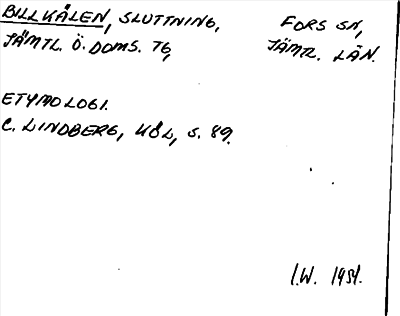 BILLKÅLEN, SLUTTNING, FORS SN,
JÄMTL. Ö. DOMS. 76, JÄMTL. LÄN.
ETYMOLOGI.
C. LINDBERG, KÖL, S. 89.
I.W. 1951.